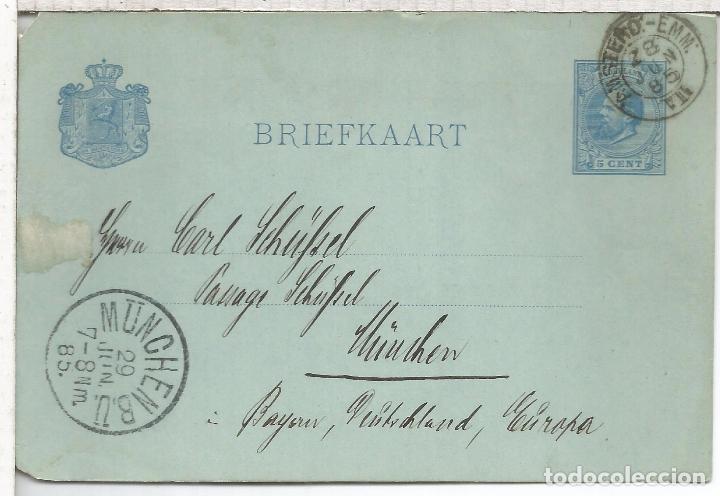 AMSTERD.-EMM.
BRIEFKAART
5 CENT
Herrn Carl Schüssel
Passage Schüssel
München
in Bayern, Deutschland, Europa
MÜNCHEN B.Ü.
29
JUN.
7-8 Nm.
85.
todocoleccion.net